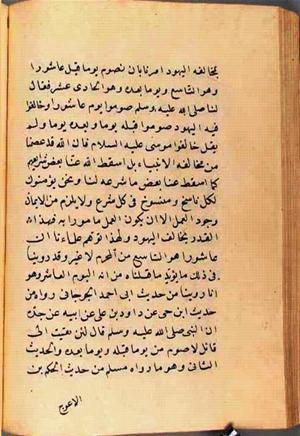 بمخالفة اليهود امرنا بان نصوم يوما قبل عاشورا
وهو التاسع ويوما بعده وهو الحادى عشر فقال
لنا صلى الله عليه وسلم صوموا يوم عاشورا وخالفوا
فيه اليهود صوموا قبله يوما وبعده يوما ولم
يقل خالفوا موسى عليه السلام فان الله قد عصمنا
من مخالفة الانبياء بل اسقط الله عنا بعض شرايعهم
كما اسقط عنا بعض ما شرعه لنا ونحن يؤمنون
لكل ناسخ ومنسوخ فى كل شرع ولا يلزم من الايمان
وجود العمل الا ان يكون العمل مامورا به فبهذا
القدر يخالف اليهود ولهذا توهم علماءنا ان
عاشورا هو التاسع من المحرم لا غير وقد روينا
فى ذلك ما يؤيد ما قلناه من انه اليوم العاشر وهو
انا روينا من حديث ابى احمد الجرجانى رواه من
حديث ابن حى عن داود بن على عن ابيه عن جده
ان النبى صلى الله عليه وسلم قال لئن بقيت الى
قابل لاصوم من يوما قبله ويوما بعده والحديث
الثانى وهو ما رواه مسلم من حديث الحكم بن
الاعوج